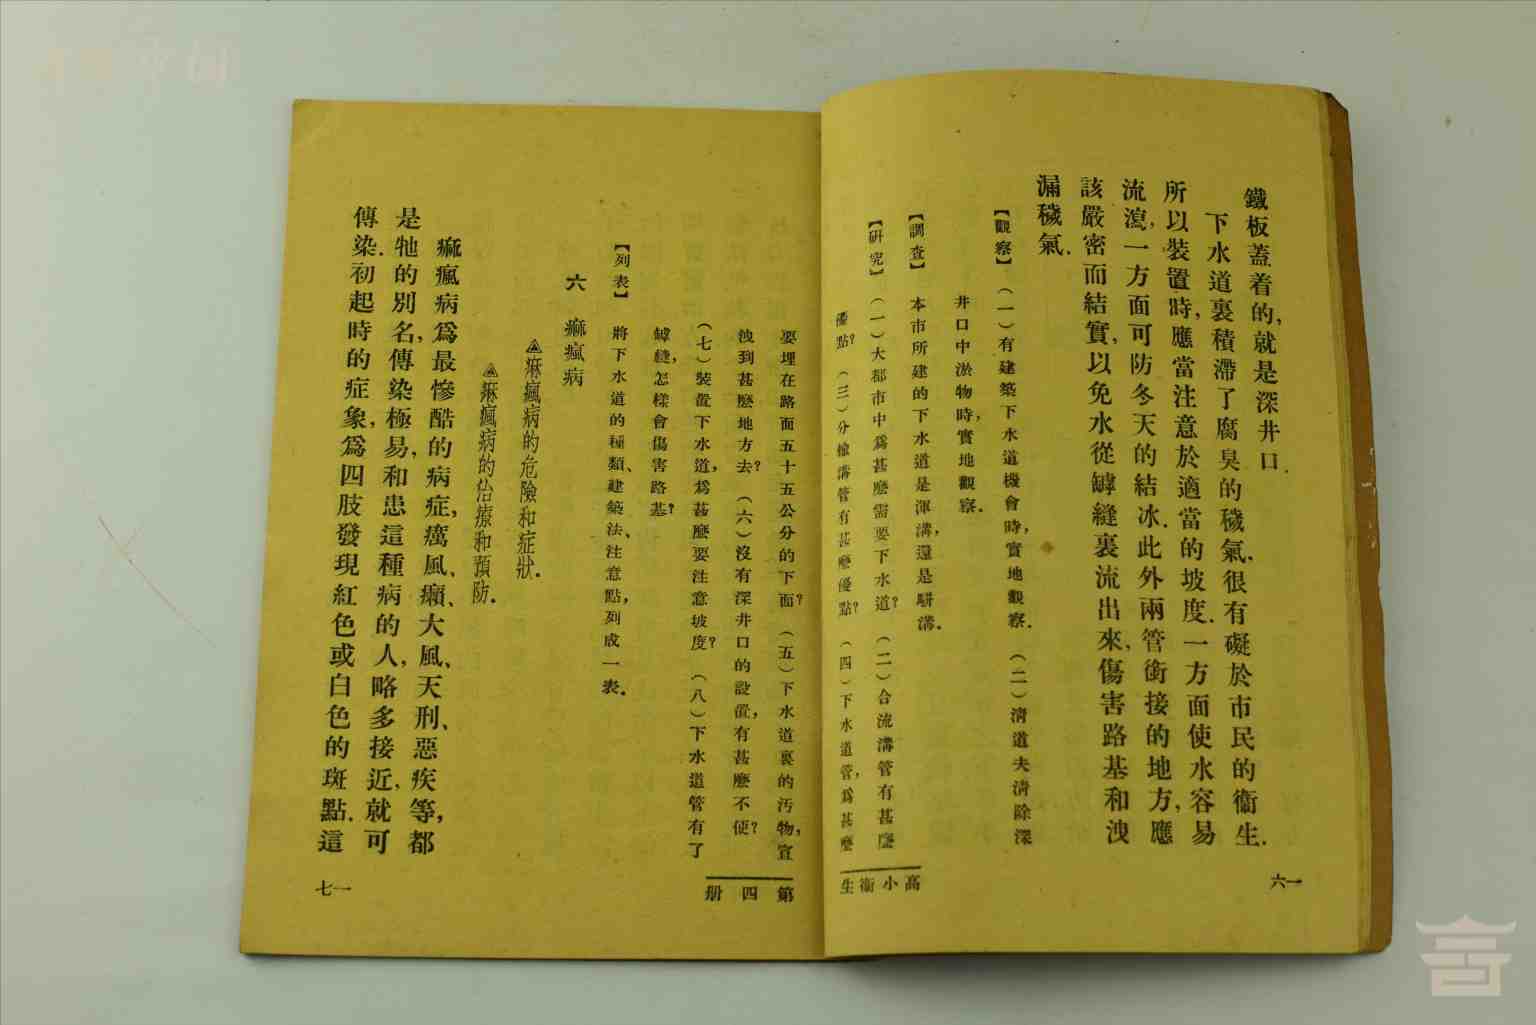 鐵板蓋着的,就是深井口.
下水道裏積滯了腐臭的穢氣,很有礙於市民的衞生.
所以裝置時,應當注意於適當的坡度.一方面使水容易
流瀉,一方面可防冬天的結冰.此外兩管銜接的地方,應
該嚴密而結實,以免水從罅縫裏流出來,傷害路基和洩
漏穢氣.
【觀察】(一)有建築下水道機會時,實地觀察. (二)清道夫清除深
井口中淤物時,實地觀察.
【調查】 本市所建的下水道是渾溝,還是騈溝.
【研究】(一)大都市中爲甚麽需要下水道? (二)合流溝管有甚麽
優點? (三)分槍溝管有甚麽優點? (四)下水道管,爲甚麽
高小衞生
一六
要埋在路面五十五公分的下面? (五)下水道裏的汚物,宣
洩到甚麽地方去? (六)沒有深井口的設置,有甚麽不便?
(七)裝置下水道,爲甚麽要注意坡度? (八)下水道管有了
罅縫,怎樣會傷害路基?
【列表】 將下水道的種類、建築法、注意點,列成一表.
六 痲瘋病
痲瘋病的危險和症狀.
痲瘋病的治療和預防.
痲瘋病爲最慘酷的病症,癘風、癩、大風、天刑、惡疾等,都
是牠的別名,傳染極易,和患這種病的人,略多接近,就可
傳染.初起時的症象,爲四肢發現紅色或白色的斑點.這
第四册
一七